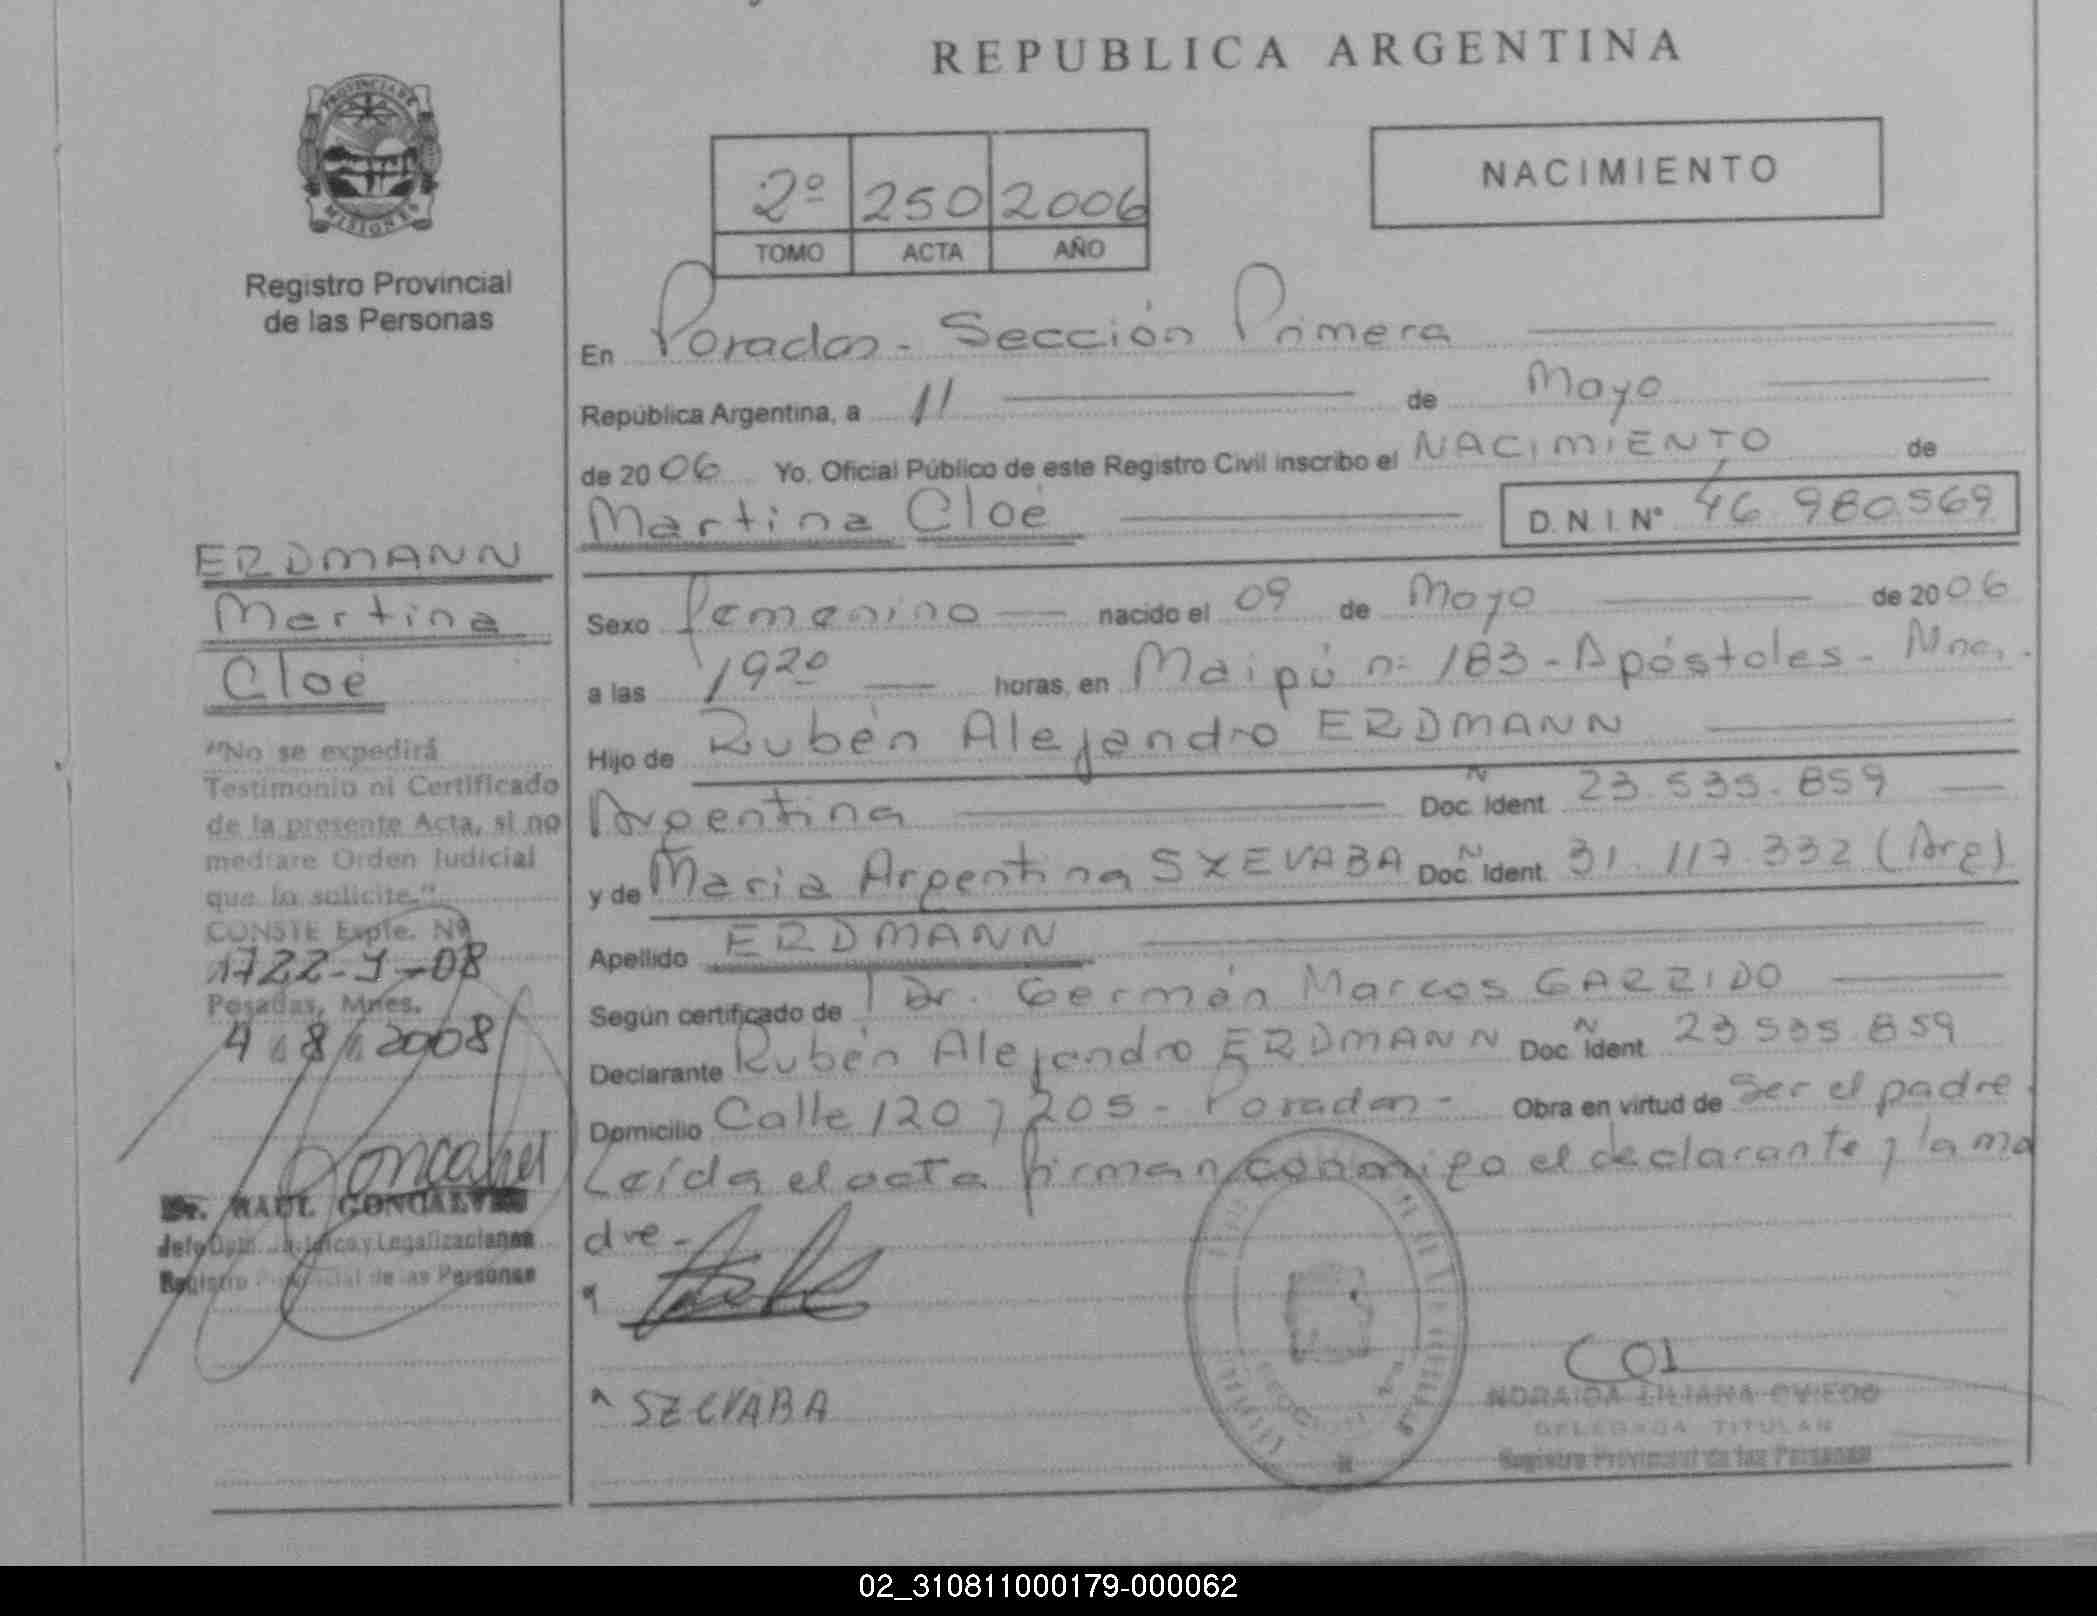 REPUBLICA ARGENTINA
PROVINCIA DE
MISIONES
Registro Provincial
de las Personas
NACIMIENTO
2º 250 2006
TOMO ACTA AÑO
En Posadas - Sección Primera
República Argentina, a 11 de Mayo
de 2006 Yo, Oficial Público de este Registro Civil inscribo el NACIMIENTO de
Martina Cloé D.N.I. Nº 46.980.569
Sexo femenino nacido el 09 de Mayo de 2006
a las 19 20 horas, en Maipú nº 183 - Apóstoles - Mnes.
Hijo de Rubén Alejandro ERDMANN
Argentina Doc. Ident. 23.535.859
y de Maria Argentina SZEVABA Doc. Ident. 31.117.332 (Arg)
Apellido ERDMANN
Según certificado de Dr. Germán Marcos GARRIDO
Declarante Rubén Alejandro ERDMANN Doc. Ident. 23.535.859
Domicilio Calle 120 y 205 - Posadas - Obra en virtud de Ser el padre.
Leída el acta firman conmigo el declarante y la ma
dre -
SZEVABA
NORAIDA LILIANA OVIEDO
DELEGADA TITULAR
Registro Provincial de las Personas
ERDMANN
Martina
Cloé
"No se expedirá
Testimonio ni Certificado
de la presente Acta, si no
mediare Orden Judicial
que lo solicite."
CONSTE Expte. Nº
1722-J-08
Posadas, Mnes.
4 / 8 / 2008
Dr. RAUL GONCALVES
Jefe Dpto. Jurídico y Legalizaciones
Registro Provincial de las Personas
02_310811000179-000062